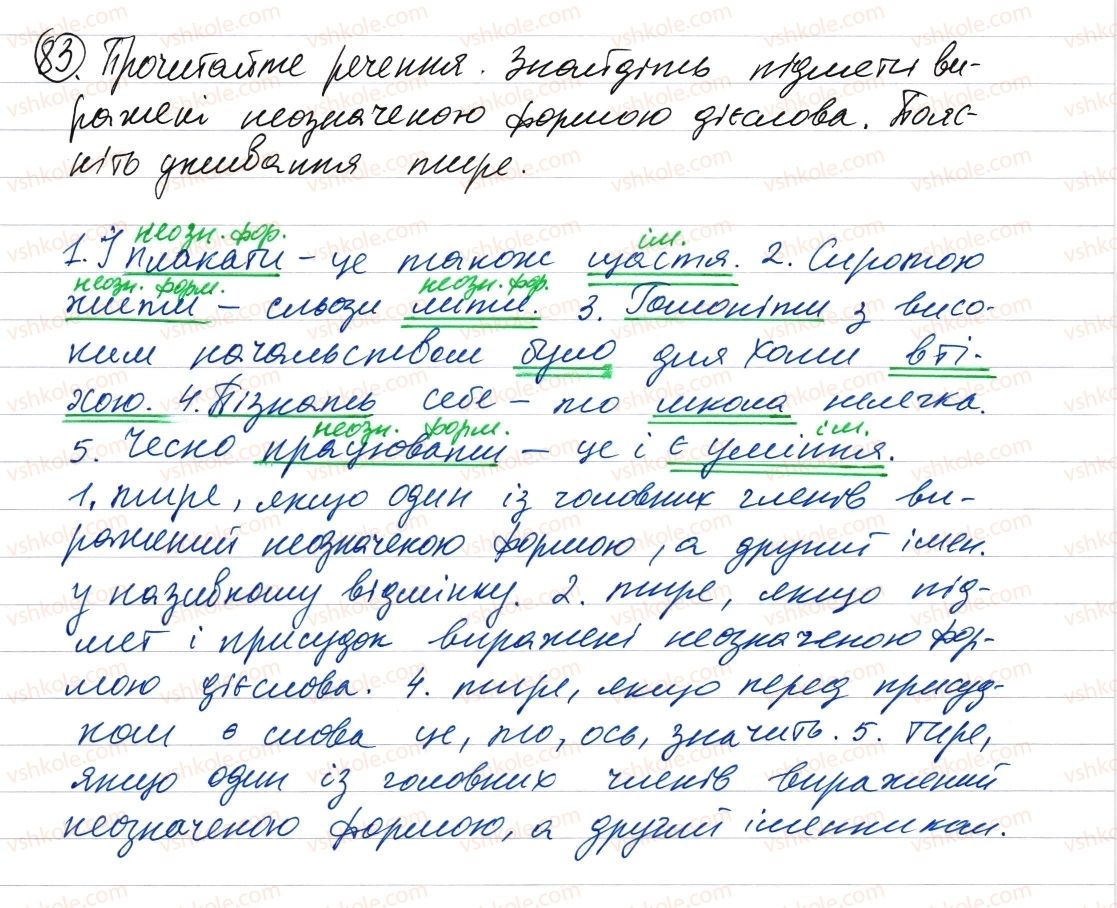 83. Прочитайте речення. Знайдіть підмети ви-
ражені неозначеною формою дієслова. Пояс-
ніть уживання тире.
неозн. фор. ім.
1. І плакати – це також щастя. 2. Сиротою
неозн. форм. неозн. фор.
жити – сльози лити. 3. Гомоніти з висо-
ким начальством було для Хоми вті-
хою. 4. Пізнать себе – то школа нелегка.
неозн. форм. ім.
5. Чесно працювати – це і є уміння.
1. тире, якщо один із головних членів ви-
ражений неозначеною формою, а другий імен.
у називному відмінку. 2. тире, якщо під-
мет і присудок виражені неозначеною фор-
мою дієслова. 4. тире, якщо перед присуд-
ком є слова це, то, ось, значить. 5. Тире,
якщо один із головних членів виражений
неозначеною формою, а другий іменником.
vshkole.com